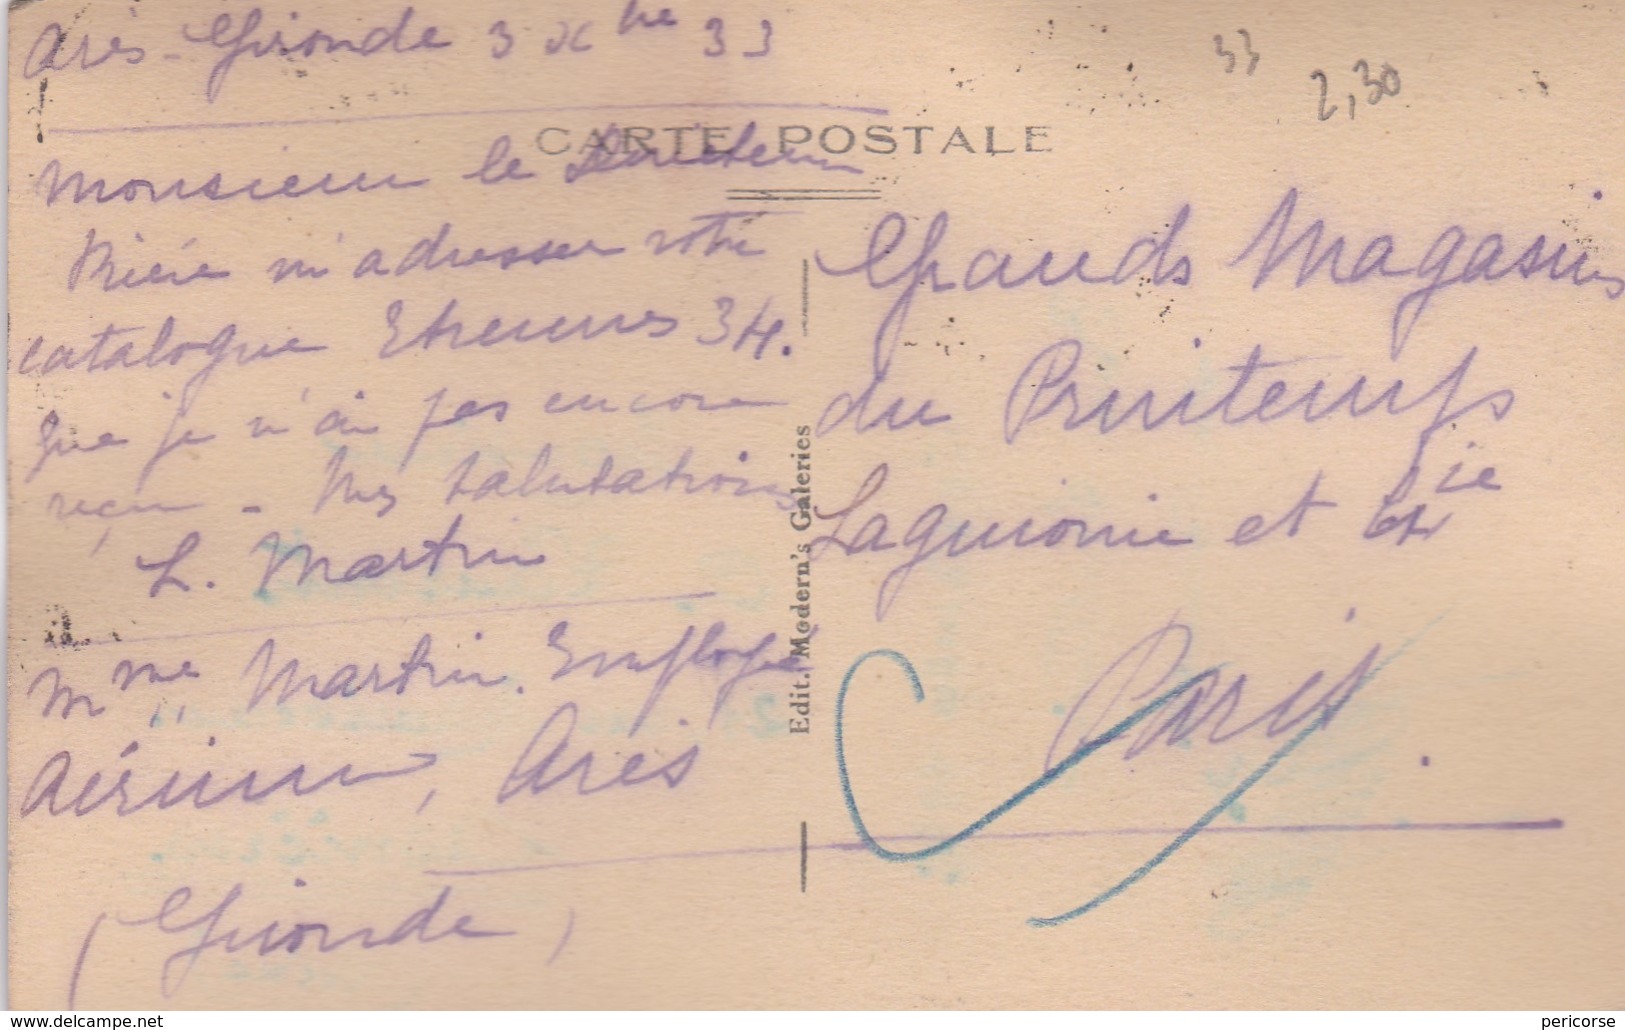 Arès - Gironde 3 Xbre 33
33 2,30
CARTE POSTALE
Monsieur le Directeur
Prière m'adresser votre
catalogue Etrennes 34.
que je n'ai pas encore
reçu - Mes salutations
L. Martin
Mme Martin. Employé
Aérium, Arès
(Gironde)
Edit. Modern's Galeries
Grands Magasins
du Printemps
Laguionie et Cie
Paris.
www.delcampe.net
pericorse